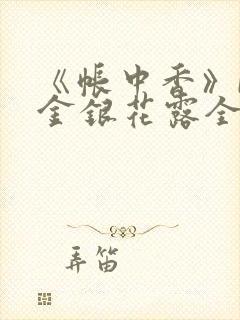 《帐中香》
金银花露全
弄笛